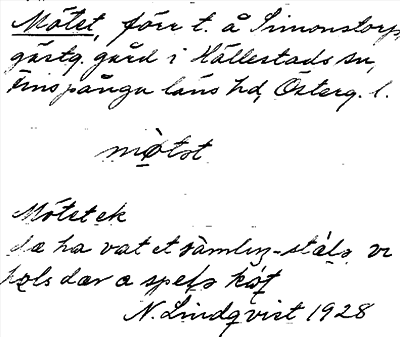 Mötet, förr t. å Simonstorps
gästg. gård i Hällestads sn,
Finspånga läns hd, Österg. l.
mòtət
Mötet ek
dæ ha vat et sàmliŋ-stálə vi
dær a
N. Lindqvist 1928